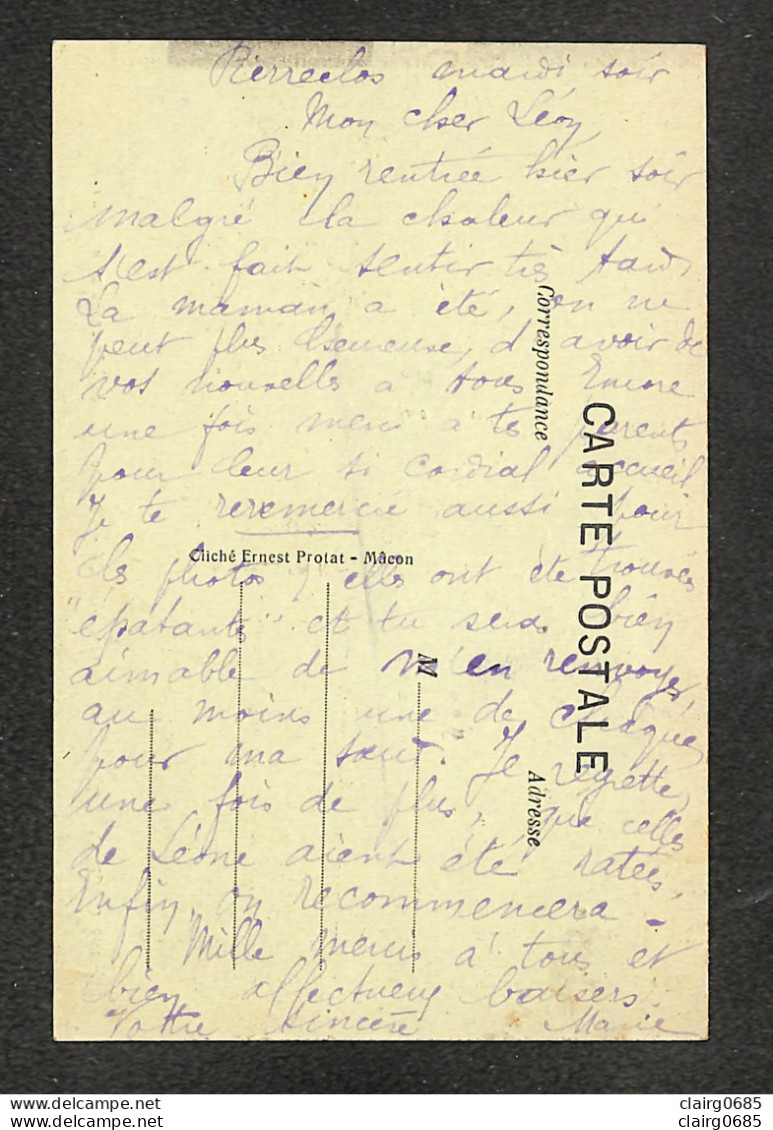 Pierreclos mardi soir
Mon cher Léon,
Bien rentrée hier soir
malgré la chaleur qui
s'est fait sentir très tard
La maman a été, on ne
peut plus heureuse, d'avoir de
vos nouvelles à tous Encore
une fois merci à tes parents
pour leur si cordial accueil
Je te reremercie aussi pour
les photos, elles ont été trouvées
"épatantes" et tu seras bien
aimable de m'en renvoyer
au moins une de chaque
pour ma sœur. Je regrette,
une fois de plus, que celles
de Léone aient été ratées.
Enfin, on recommencera -
Mille mercis à tous et
bien affectueux baisers.
Votre sincère Marie
Correspondance
CARTE POSTALE
Adresse
M
Cliché Ernest Protat - Mâcon
delcampe.net
delcampe.net
clairg0685
clairg0685